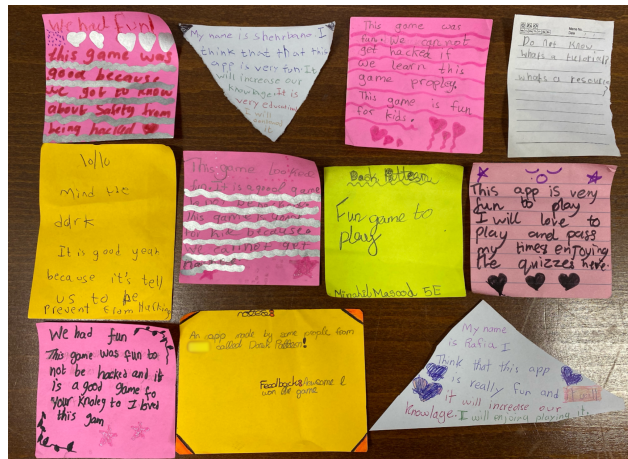 We had fun!
this game was
good because
we got to know
about Safety from
being hacked
My name is Shehrbano I
think that that this
app is very fun. It
will increase our
knowlage. It is
very education
I will
it
This game was
fun. We can not
get hacked if
we learn this
game propley.
This game is fun
for kids.
Do not know
whats a tutorial?
whats a resource
?
10/10
Mind the
dark
It is good yeah
because it's tell
us to be
prevent from Hacking
This game looked
fun. It is a good game
This game is
for kids because
we cannot get
Dark Pattern
Fun game to
play
Masood 5E
This app is very
fun to play
I will love to
play and pass
my times enjoying
the quizzes here.
We had fun
This game was fun to
not be hacked and it
is a good game fo
your Knoleg to I loved
this gam
An app made by some people from
called Dark Pattern!
Feedback: Awsome I
won the game
My name
is Rafia I
Think that this app
is really fun and
it will increase our
knowlage. I will enjoying playing it.